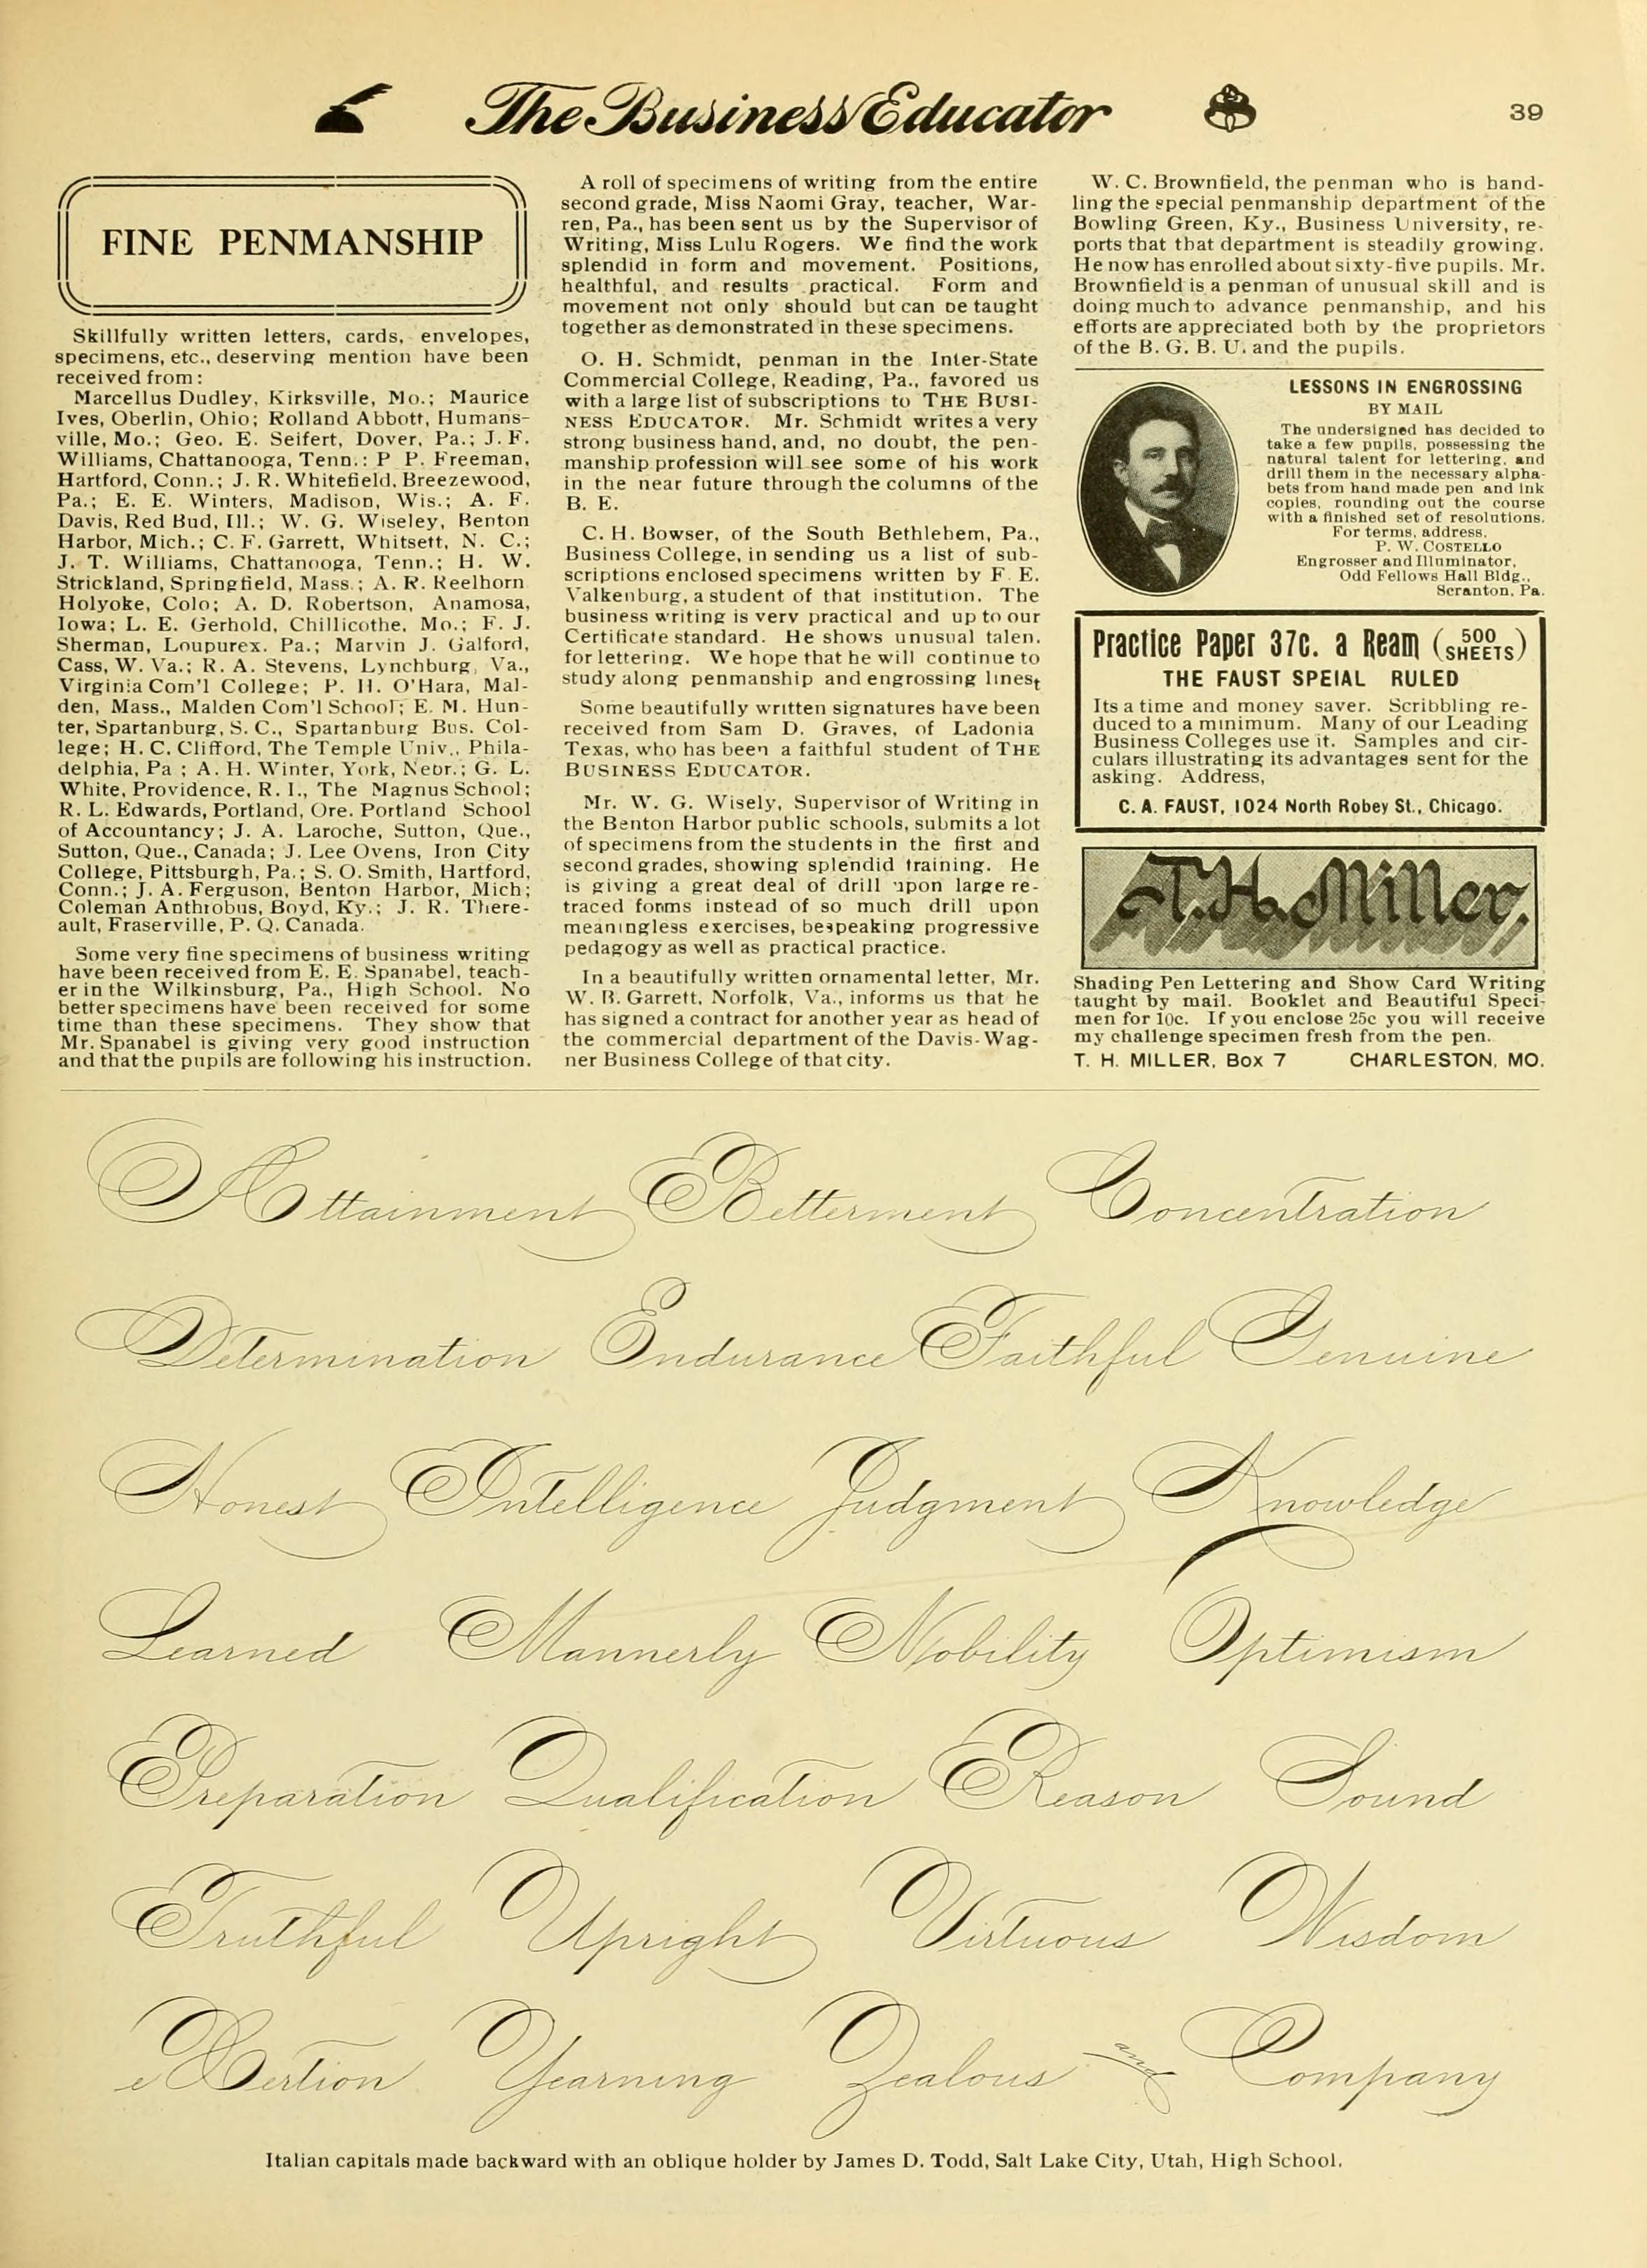 The Business Educator
39
FINE PENMANSHIP
Skillfully written letters, cards, envelopes,
specimens, etc., deserving mention have been
received from:
Marcellus Dudley, Kirksville, Mo.; Maurice
Ives, Oberlin, Ohio; Rolland Abbott, Humans-
ville, Mo.; Geo. E. Seifert, Dover, Pa.; J. F.
Williams, Chattanooga, Tenn.: P P. Freeman,
Hartford, Conn.; J. R. Whitefield, Breezewood,
Pa.; E. E. Winters, Madison, Wis.; A. F.
Davis, Red Bud, Ill.; W. G. Wiseley, Benton
Harbor, Mich.; C. F. Garrett, Whitsett, N. C.;
J. T. Williams, Chattanooga, Tenn.; H. W.
Strickland, Springfield, Mass.; A. R. Reelhorn
Holyoke, Colo; A. D. Robertson, Anamosa,
Iowa; L. E. Gerhold, Chillicothe, Mo.; F. J.
Sherman, Loupurex. Pa.; Marvin J. Galford,
Cass, W. Va.; R. A. Stevens, Lynchburg, Va.,
Virginia Com'l College; P. H. O'Hara, Mal-
den, Mass., Malden Com'l School; E. M. Hun-
ter, Spartanburg, S. C., Spartanburg Bus. Col-
lege; H. C. Clifford, The Temple Univ., Phila-
delphia, Pa ; A. H. Winter, York, Nebr.; G. L.
White, Providence, R. I., The Magnus School;
R. L. Edwards, Portland, Ore. Portland School
of Accountancy; J. A. Laroche, Sutton, Que.,
Sutton, Que., Canada; J. Lee Ovens, Iron City
College, Pittsburgh, Pa.; S. O. Smith, Hartford,
Conn.; J. A. Ferguson, Benton Harbor, Mich;
Coleman Anthrobus, Boyd, Ky.; J. R. There-
ault, Fraserville, P. Q. Canada.
Some very fine specimens of business writing
have been received from E. E. Spanabel, teach-
er in the Wilkinsburg, Pa., High School. No
better specimens have been received for some
time than these specimens. They show that
Mr. Spanabel is giving very good instruction
and that the pupils are following his instruction.
A roll of specimens of writing from the entire
second grade, Miss Naomi Gray, teacher, War-
ren, Pa., has been sent us by the Supervisor of
Writing, Miss Lulu Rogers. We find the work
splendid in form and movement. Positions,
healthful, and results practical. Form and
movement not only should but can be taught
together as demonstrated in these specimens.
O. H. Schmidt, penman in the Inter-State
Commercial College, Reading, Pa., favored us
with a large list of subscriptions to THE BUSI-
NESS EDUCATOR. Mr. Schmidt writes a very
strong business hand, and, no doubt, the pen-
manship profession will see some of his work
in the near future through the columns of the
B. E.
C. H. Bowser, of the South Bethlehem, Pa.,
Business College, in sending us a list of sub-
scriptions enclosed specimens written by F. E.
Valkenburg, a student of that institution. The
business writing is very practical and up to our
Certificate standard. He shows unusual talen.
for lettering. We hope that he will continue to
study along penmanship and engrossing linest
Some beautifully written signatures have been
received from Sam D. Graves, of Ladonia
Texas, who has been a faithful student of THE
BUSINESS EDUCATOR.
Mr. W. G. Wisely, Supervisor of Writing in
the Benton Harbor public schools, submits a lot
of specimens from the students in the first and
second grades, showing splendid training. He
is giving a great deal of drill upon large re-
traced forms instead of so much drill upon
meaningless exercises, bespeaking progressive
pedagogy as well as practical practice.
In a beautifully written ornamental letter, Mr.
W. B. Garrett, Norfolk, Va., informs us that he
has signed a contract for another year as head of
the commercial department of the Davis-Wag-
ner Business College of that city.
W. C. Brownfield, the penman who is hand-
ling the special penmanship department of the
Bowling Green, Ky., Business University, re-
ports that that department is steadily growing.
He now has enrolled about sixty-five pupils. Mr.
Brownfield is a penman of unusual skill and is
doing much to advance penmanship, and his
efforts are appreciated both by the proprietors
of the B. G. B. U. and the pupils.
LESSONS IN ENGROSSING
BY MAIL
The undersigned has decided to
take a few pupils, possessing the
natural talent for lettering, and
drill them in the necessary alpha-
bets from hand made pen and ink
copies, rounding out the course
with a finished set of resolutions.
For terms, address,
P. W. COSTELLO
Engrosser and Illuminator,
Odd Fellows Hall Bldg.,
Scranton, Pa.
Practice Paper 37c. a Ream (500 SHEETS)
THE FAUST SPEIAL RULED
Its a time and money saver. Scribbling re-
duced to a minimum. Many of our Leading
Business Colleges use it. Samples and cir-
culars illustrating its advantages sent for the
asking. Address,
C. A. FAUST, 1024 North Robey St., Chicago.
T. H. Miller,
Shading Pen Lettering and Show Card Writing
taught by mail. Booklet and Beautiful Speci-
men for 10c. If you enclose 25c you will receive
my challenge specimen fresh from the pen.
T. H. MILLER, Box 7 CHARLESTON, MO.
Attainment Betterment Concentration
Determination Endurance Faithful Genuine
Honest Intelligence Judgment Knowledge
Learned Mannerly Nobility Optimism
Preparation Qualification Reason Sound
Truthful Upright Virtuous Wisdom
eXertion Yearning Zealous and Company
Italian capitals made backward with an oblique holder by James D. Todd, Salt Lake City, Utah, High School.